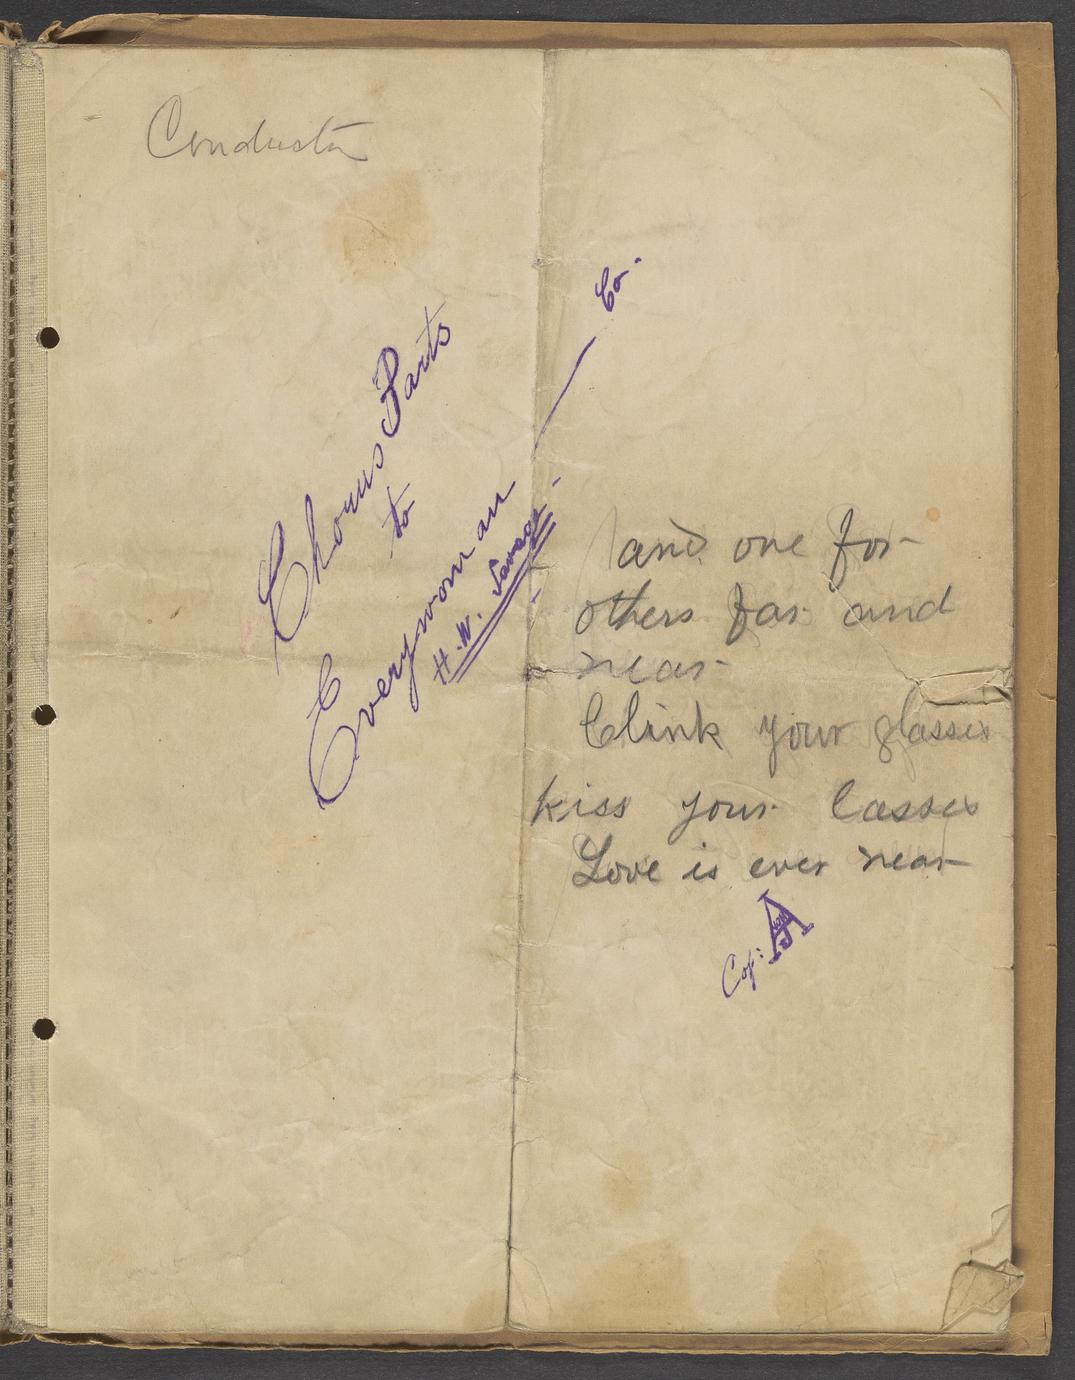 Conductor
Chorus Parts
to
Everywoman — Co.
H. W. Savage
and one for
others far and
near
Clink your glasses
kiss your lasses
Love is ever near